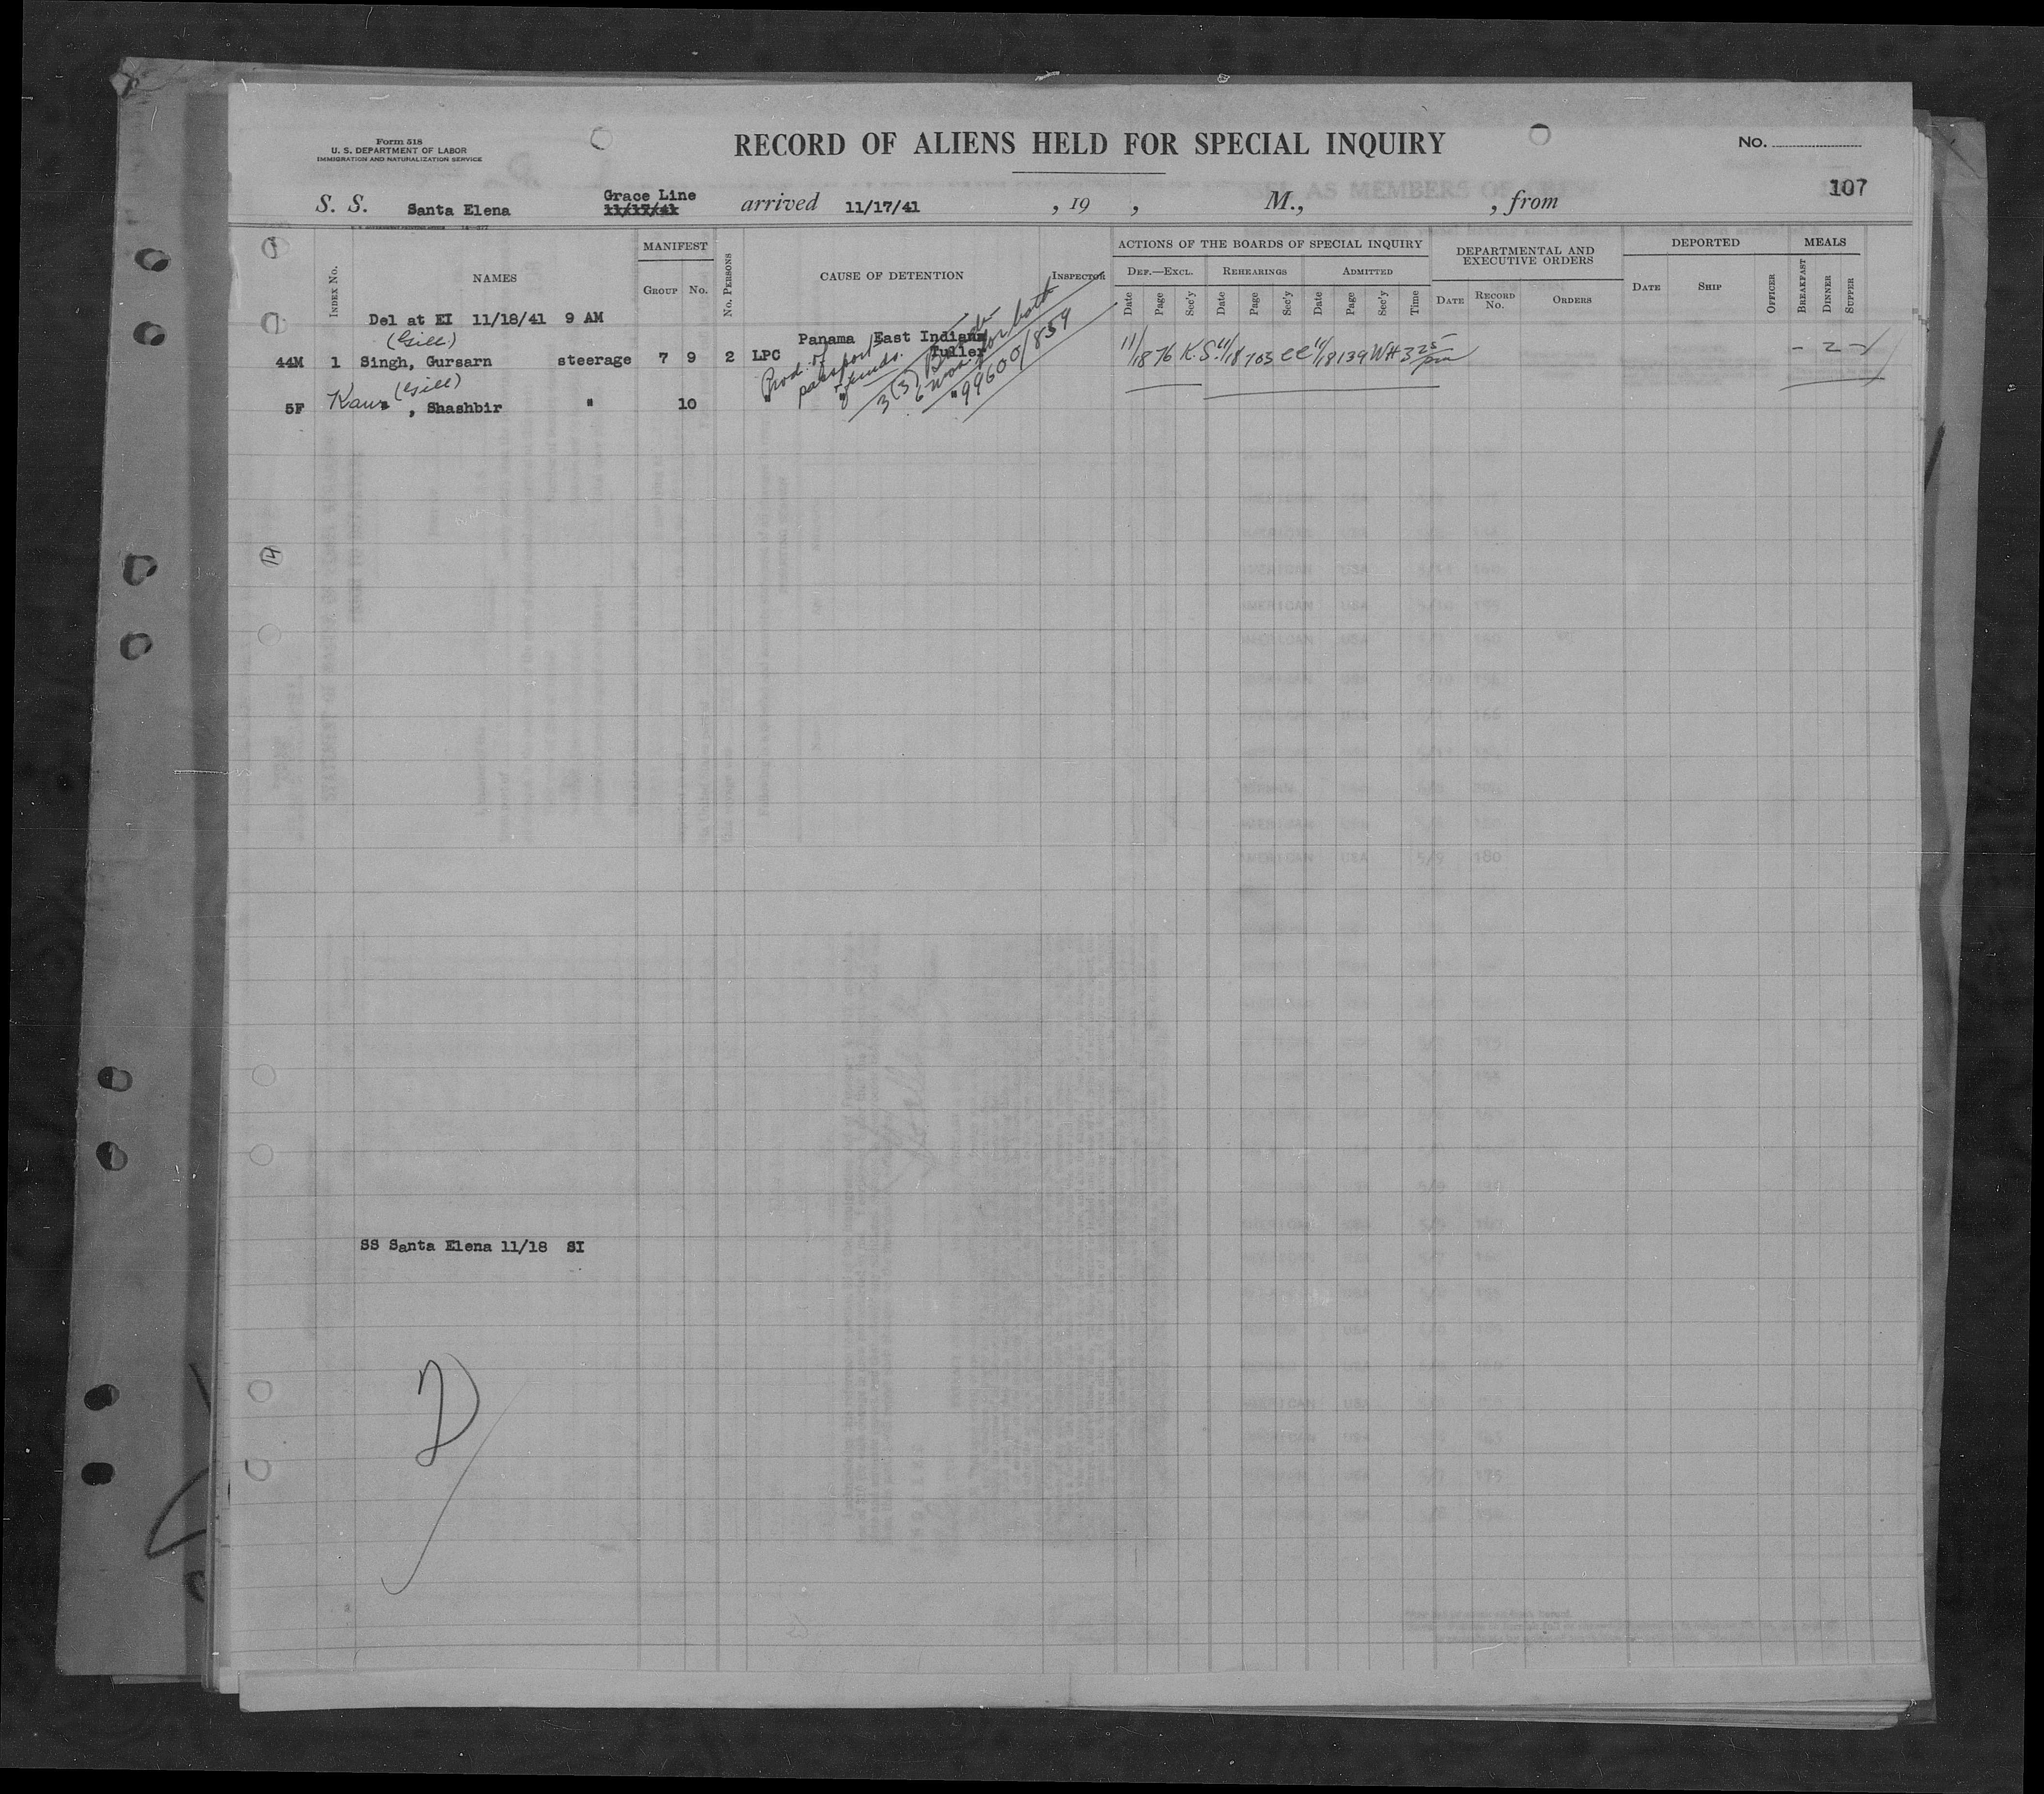 Form 518
U. S. DEPARTMENT OF LABOR
IMMIGRATION AND NATURALIZATION SERVICE
RECORD OF ALIENS HELD FOR SPECIAL INQUIRY
No.
107
S. S. Santa Elena Grace Line 11/17/41 arrived 11/17/41 , 19 , M., , from
INDEX No. NAMES MANIFEST GROUP No. No. PERSONS CAUSE OF DETENTION INSPECTOR
ACTIONS OF THE BOARDS OF SPECIAL INQUIRY
DEF.—EXCL. REHEARINGS ADMITTED
Date Page Sec'y Date Page Sec'y Date Page Sec'y Time
DEPARTMENTAL AND EXECUTIVE ORDERS
DATE RECORD No. ORDERS
DEPORTED
DATE SHIP OFFICER
MEALS
BREAKFAST DINNER SUPPER
Del at EI 11/18/41 9 AM
(Gill) Panama East Indians
44M 1 Singh, Gursarn steerage 7 9 2 LPC Tuller 11/18 76 K.S. 11/18 703 CC 11/18 139 WH 3 25 pm - 2 -
Prod. of
passport
& funds.
3 (3)
6 mos. for both
"99600/859
(Gill)
5F Kaur , Shashbir " 10 "
14
SS Santa Elena 11/18 SI
D